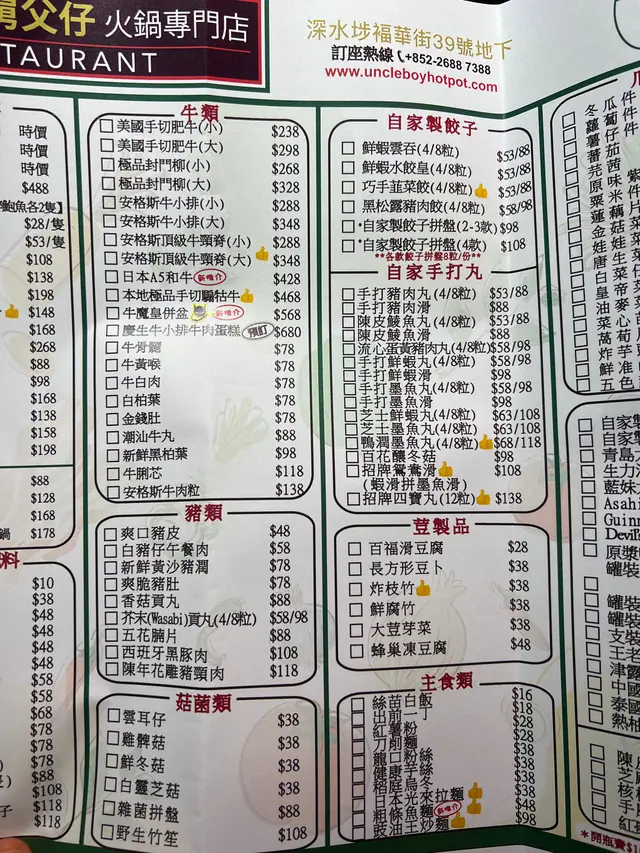 舅父仔 火鍋專門店
TAURANT
深水埗福華街39號地下
訂座熱線 +852-2688 7388
www.uncleboyhotpot.com
時價
時價
時價
$488
鮑魚各2隻】
$28/隻
$53/隻
$108
$138
$198
$148
$168
$268
$88
$98
$168
$138
$158
$198
$88
$128
$168
鍋 $178
料
$10
$38
$48
$48
$48
$48
$58
$58
$68
$78
$78
$88
$108
子 $118
$118
牛類
美國手切肥牛(小) $238
美國手切肥牛(大) $298
極品封門柳(小) $268
極品封門柳(大) $328
安格斯牛小排(小) $288
安格斯牛小排(大) $348
安格斯頂級牛頸脊(小) $288
安格斯頂級牛頸脊(大) $348
日本A5和牛 新推介 $428
本地極品手切騸牯牛 $468
牛魔皇併盆 新推介 $568
慶生牛小排牛肉蛋糕 預訂 $680
牛骨髓 $78
牛黃喉 $78
牛白肉 $78
白柏葉 $78
金錢肚 $78
潮汕牛丸 $88
新鮮黑柏葉 $98
牛脷芯 $118
安格斯牛肉粒 $138
豬類
爽口豬皮 $48
白豬仔午餐肉 $58
新鮮黃沙豬潤 $78
爽脆豬肚 $78
香菇貢丸 $88
芥末(Wasabi)貢丸(4/8粒) $58/98
五花腩片 $88
西班牙黑豚肉 $108
陳年花雕豬頸肉 $118
菇菌類
雲耳仔 $38
雞髀菇 $38
鮮冬菇 $38
白靈芝菇 $38
雜菌拼盤 $88
野生竹笙 $108
自家製餃子
鮮蝦雲吞(4/8粒) $53/88
鮮蝦水餃皇(4/8粒) $53/88
巧手韮菜餃(4/8粒) $53/88
黑松露豬肉餃(4/8粒) $58/98
*自家製餃子拼盤(2-3款) $98
*自家製餃子拼盤(4款) $108
**各款餃子拼盤8粒/份**
自家手打丸
手打豬肉丸(4/8粒) $53/88
手打豬肉滑 $88
陳皮鯪魚丸(4/8粒) $53/88
陳皮鯪魚滑 $88
流心蛋黃豬肉丸(4/8粒) $58/98
手打鮮蝦丸(4/8粒) $58/98
手打鮮蝦滑 $98
手打墨魚丸(4/8粒) $58/98
手打墨魚滑 $98
芝士鮮蝦丸(4/8粒) $63/108
芝士墨魚丸(4/8粒) $63/108
鴨潤墨魚丸(4/8粒) $68/118
百花釀冬菇 $98
招牌鴛鴦滑 $108
(蝦滑拼墨魚滑)
招牌四寶丸(12粒) $138
荳製品
百福滑豆腐 $28
長方形豆卜 $38
炸枝竹 $38
鮮腐竹 $38
大荳芽菜 $38
蜂巢凍豆腐 $48
主食類
絲苗白飯 $16
出前一丁 $18
紅薯粉 $28
刀削麵 $28
龍口粉絲 $38
健康芋絲 $38
稻庭烏冬 $38
日本光來拉麵 $38
粗條魚麵 新推介 $48
豉油王炒麵 $98
瓜
冬瓜件
自家製
自家製
青島
生力
藍妹
Asahi
Guin
Devil's
原漿
罐裝
罐裝
罐裝
支裝
王老
津
中國
泰國
熱
陳皮
芝
核
手
紅
*開瓶費$1